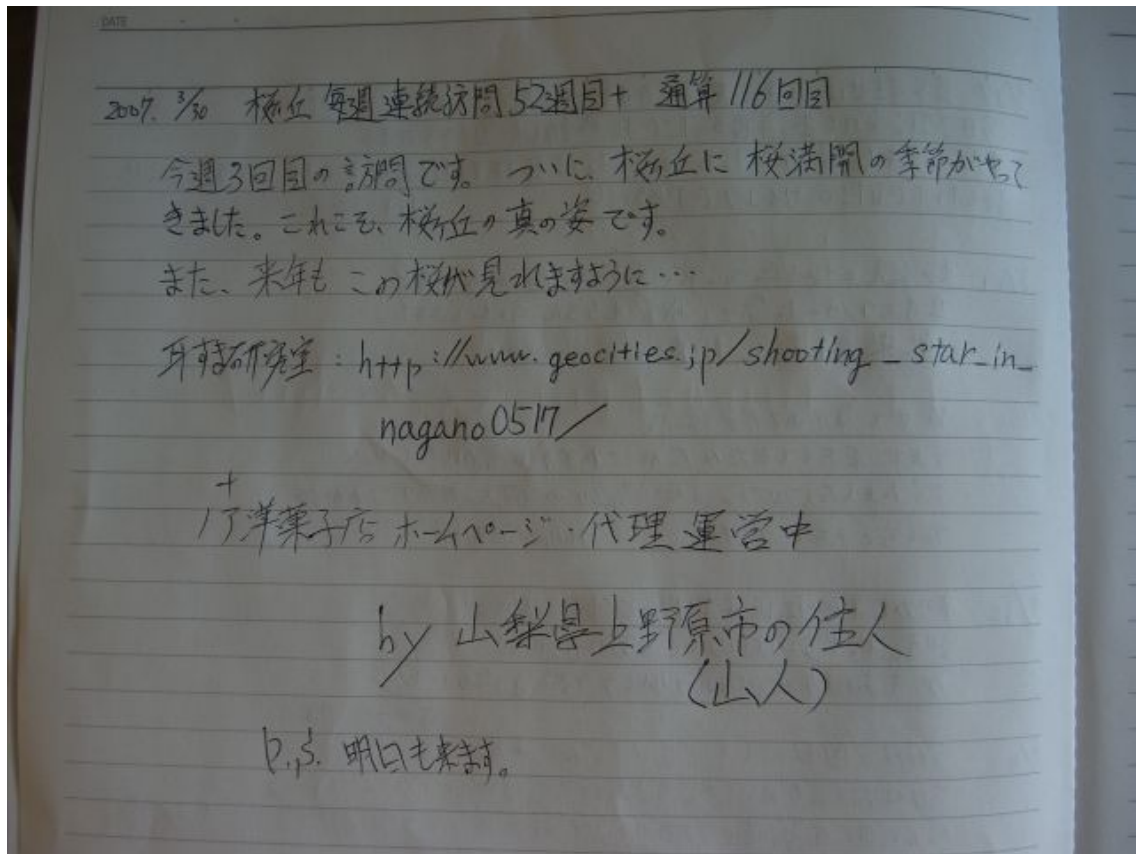 DATE
2007. 3/30 桜ヶ丘 毎週連続訪問52週目+ 通算116回目
今週3回目の訪問です。ついに、桜ヶ丘に桜満開の季節がやって
きました。これこそ、桜ヶ丘の真の姿です。
また、来年もこの桜が見れますように…
耳すま研究室:http://www.geocities.jp/shooting_star_in_
nagano0517/
+
ノア洋菓子店ホームページ・代理運営中
by 山梨県上野原市の住人
(山人)
P.S. 明日も来ます。